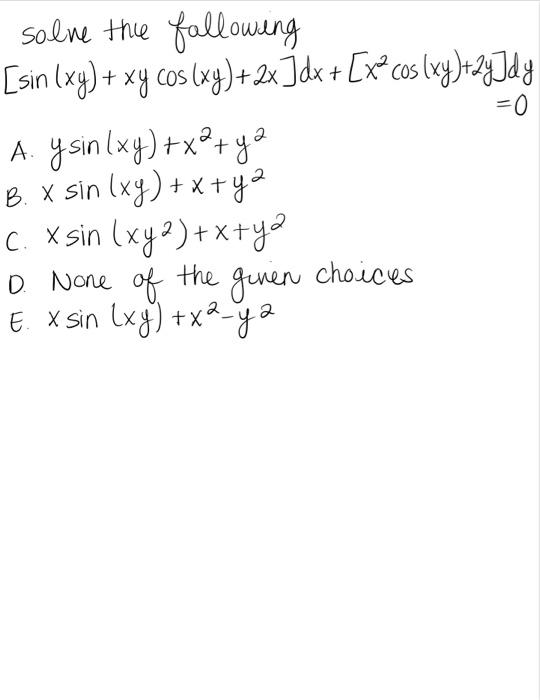 solve the following
[sin(xy) + xy cos(xy) + 2x]dx + [x² cos(xy)+2y]dy
=0
A. y sin(xy) + x² + y²
B. x sin (xy) + x + y²
C. x sin (xy²) + x + y²
D. None of the given choices
E. x sin (xy) + x² - y²